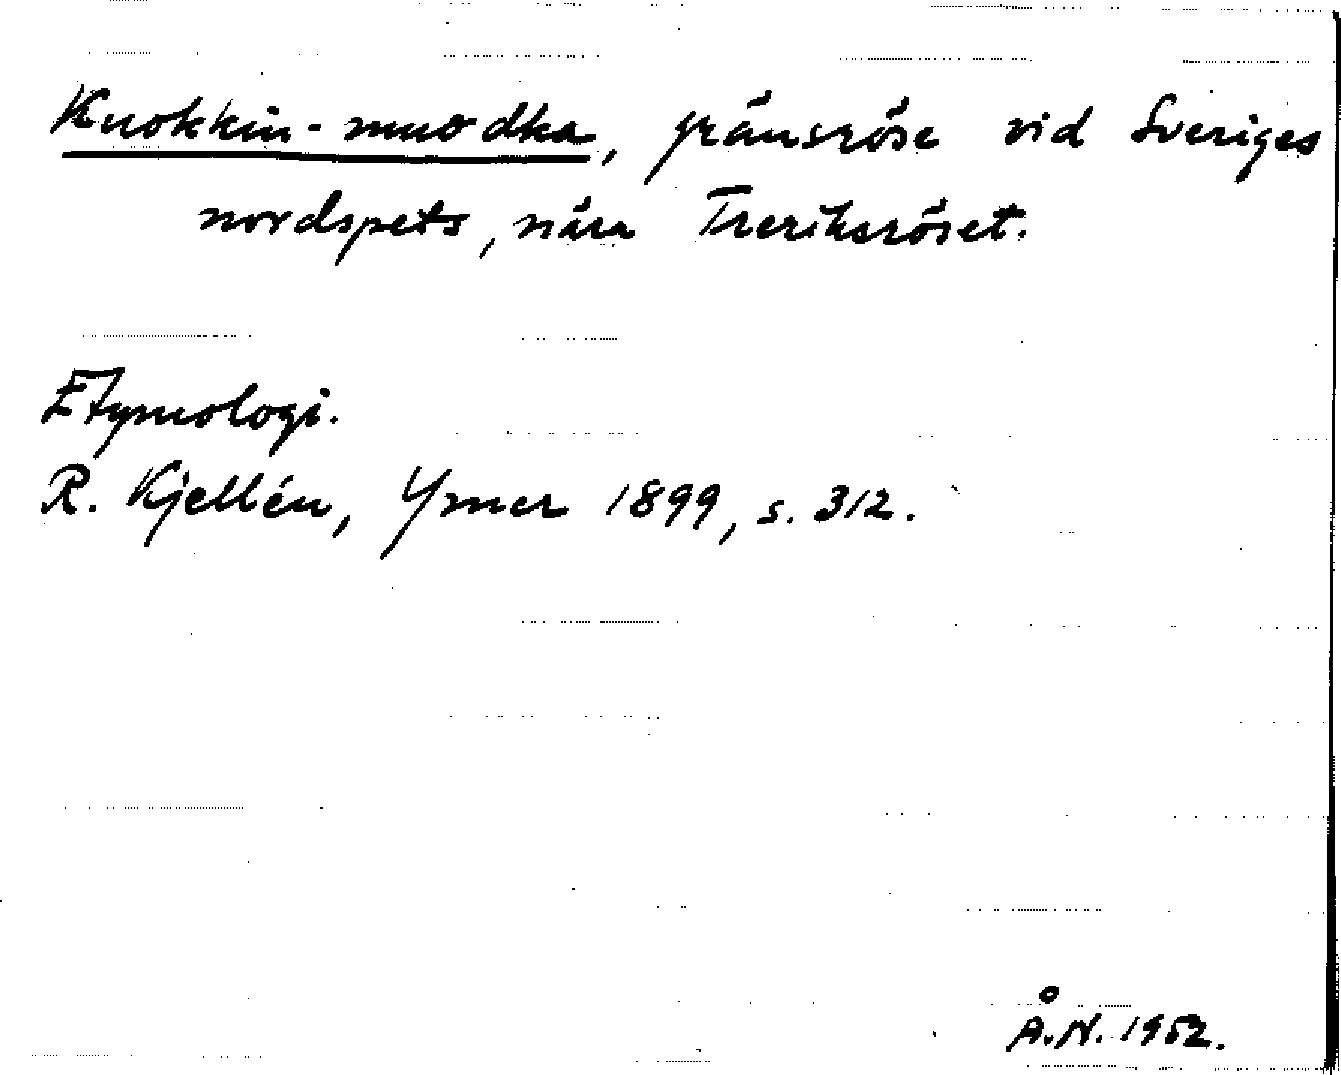 Kuokkin-muodka, gränsröse vid Sveriges
nordspets, nära Treriksröset.
Etymologi.
R. Kjellén, Ymer 1899, s. 312.
Å.N. 1952.